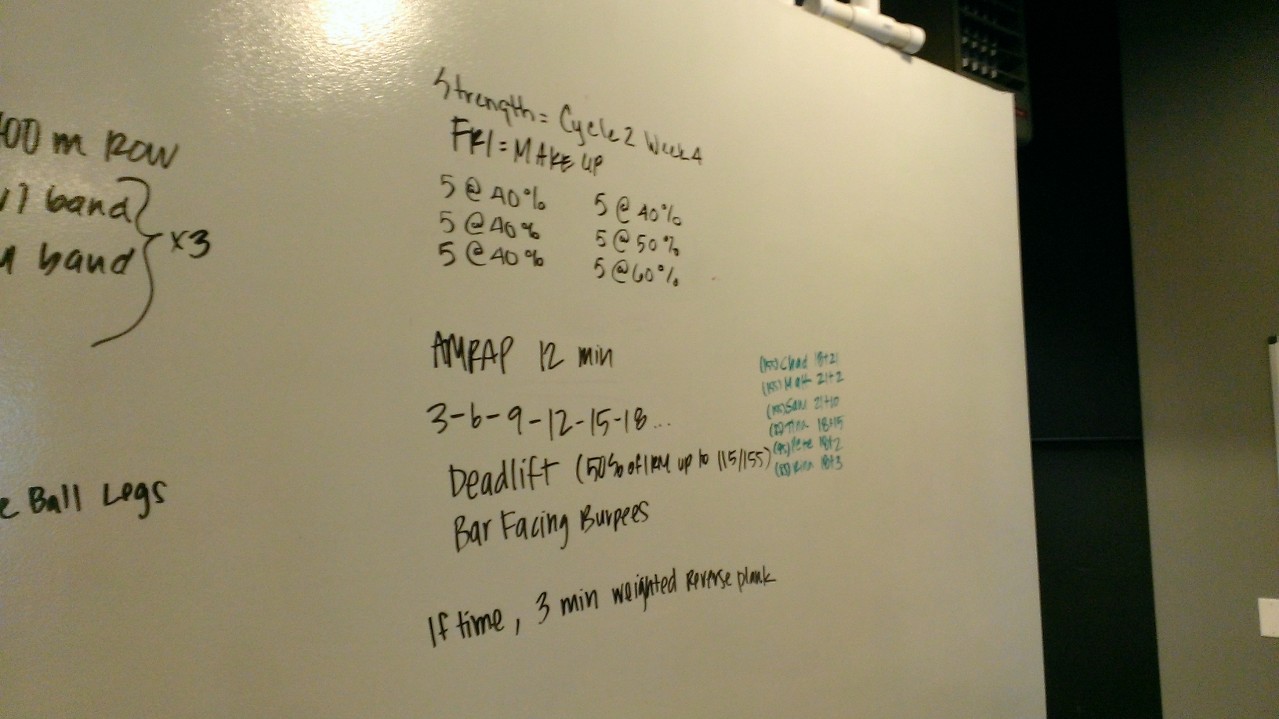 00 m Row
band
band
x3
e Ball Legs
Strength = Cycle 2 Week 4
FRI = MAKE UP
5 @ 40% 5 @ 40%
5 @ 40% 5 @ 50%
5 @ 40% 5 @ 60%
AMRAP 12 min
3-6-9-12-15-18...
Deadlift (50% of 1RM up to 115/155)
Bar Facing Burpees
If time, 3 min weighted reverse plank
Chad 18+21
Matt 21+2
Sam 21+10
Tina 18+15
Pete 18+2
18+3